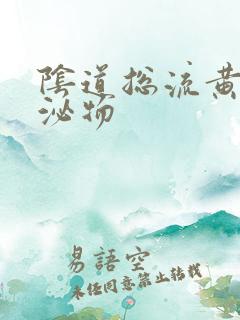 陰道総流黄
泌物
易語空
未经同意禁止转载